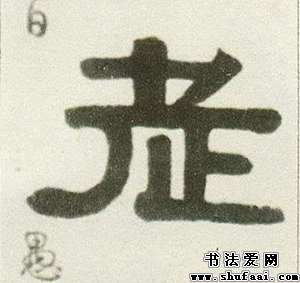 日
老
愚
书法爱网
www.shufaai.com